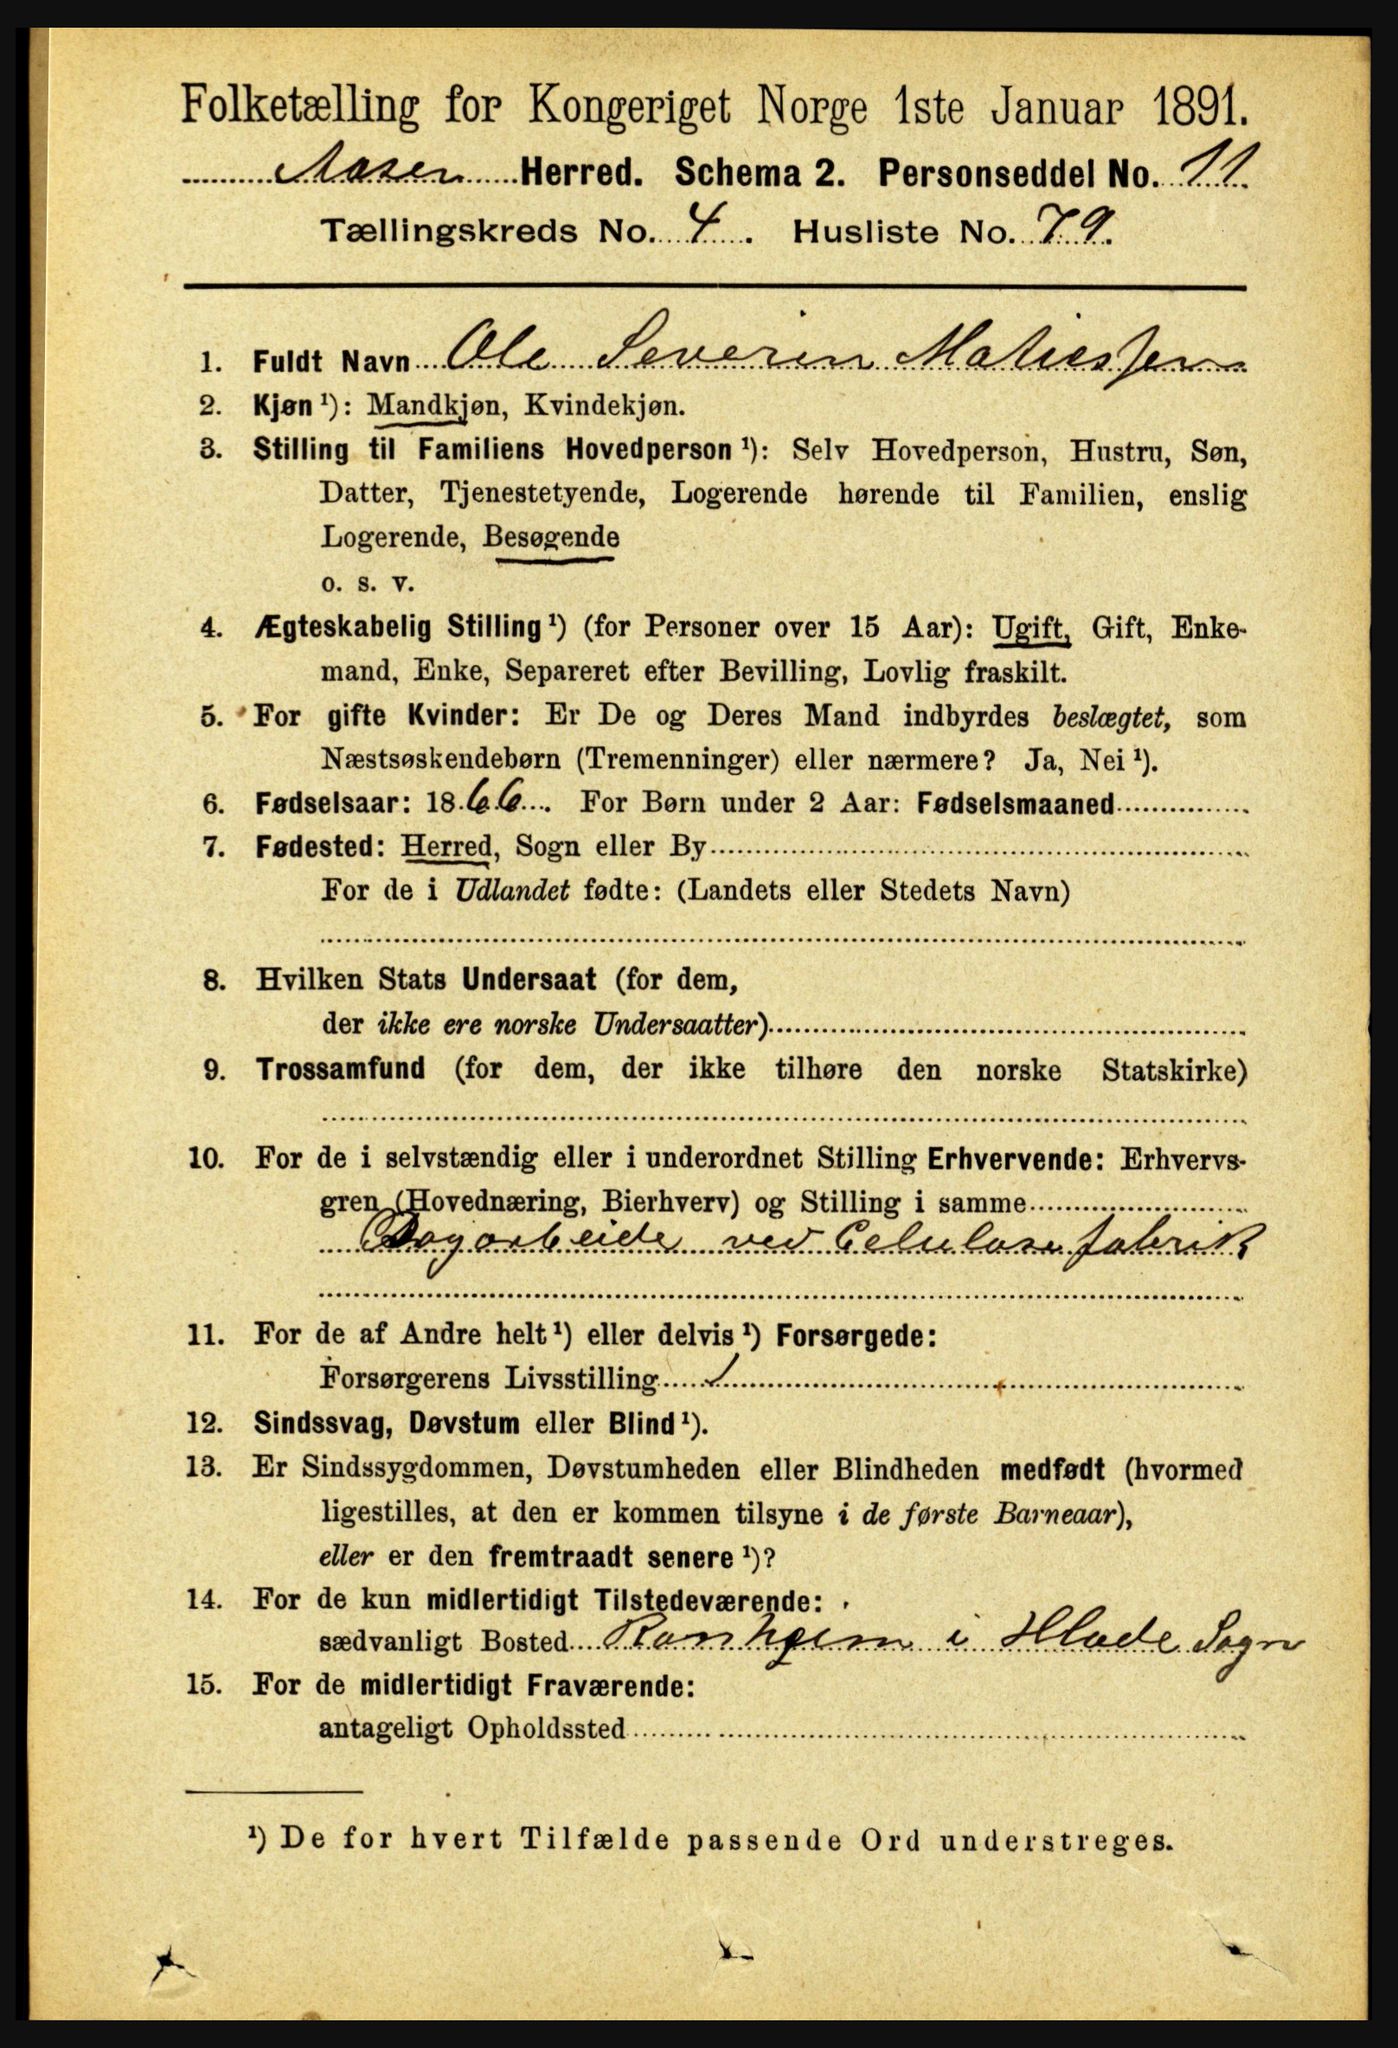 Folketælling for Kongeriget Norge 1ste Januar 1891.
Aasen Herred. Schema 2. Personseddel No. 11.
Tællingskreds No. 4. Husliste No. 79.
1. Fuldt Navn Ole Severin Matiessen
2. Kjøn ¹): Mandkjøn, Kvindekjøn.
3. Stilling til Familiens Hovedperson ¹): Selv Hovedperson, Hustru, Søn,
Datter, Tjenestetyende, Logerende hørende til Familien, enslig
Logerende, Besøgende
o. s. v.
4. Ægteskabelig Stilling ¹) (for Personer over 15 Aar): Ugift, Gift, Enke-
mand, Enke, Separeret efter Bevilling, Lovlig fraskilt.
5. For gifte Kvinder: Er De og Deres Mand indbyrdes beslægtet, som
Næstsøskendebørn (Tremenninger) eller nærmere? Ja, Nei ¹).
6. Fødselsaar: 1866. For Børn under 2 Aar: Fødselsmaaned
7. Fødested: Herred, Sogn eller By
For de i Udlandet fødte: (Landets eller Stedets Navn)
8. Hvilken Stats Undersaat (for dem,
der ikke ere norske Undersaatter)
9. Trossamfund (for dem, der ikke tilhøre den norske Statskirke)
10. For de i selvstændig eller i underordnet Stilling Erhvervende: Erhvervs-
gren (Hovednæring, Bierhverv) og Stilling i samme
Dagarbeide ved Celulosefabrik
11. For de af Andre helt ¹) eller delvis ¹) Forsørgede:
Forsørgerens Livsstilling
12. Sindssvag, Døvstum eller Blind ¹).
13. Er Sindssygdommen, Døvstumheden eller Blindheden medfødt (hvormed
ligestilles, at den er kommen tilsyne i de første Barneaar),
eller er den fremtraadt senere ¹)?
14. For de kun midlertidigt Tilstedeværende:
sædvanligt Bosted Ranheim i Hlade Sogn
15. For de midlertidigt Fraværende:
antageligt Opholdssted
¹) De for hvert Tilfælde passende Ord understreges.